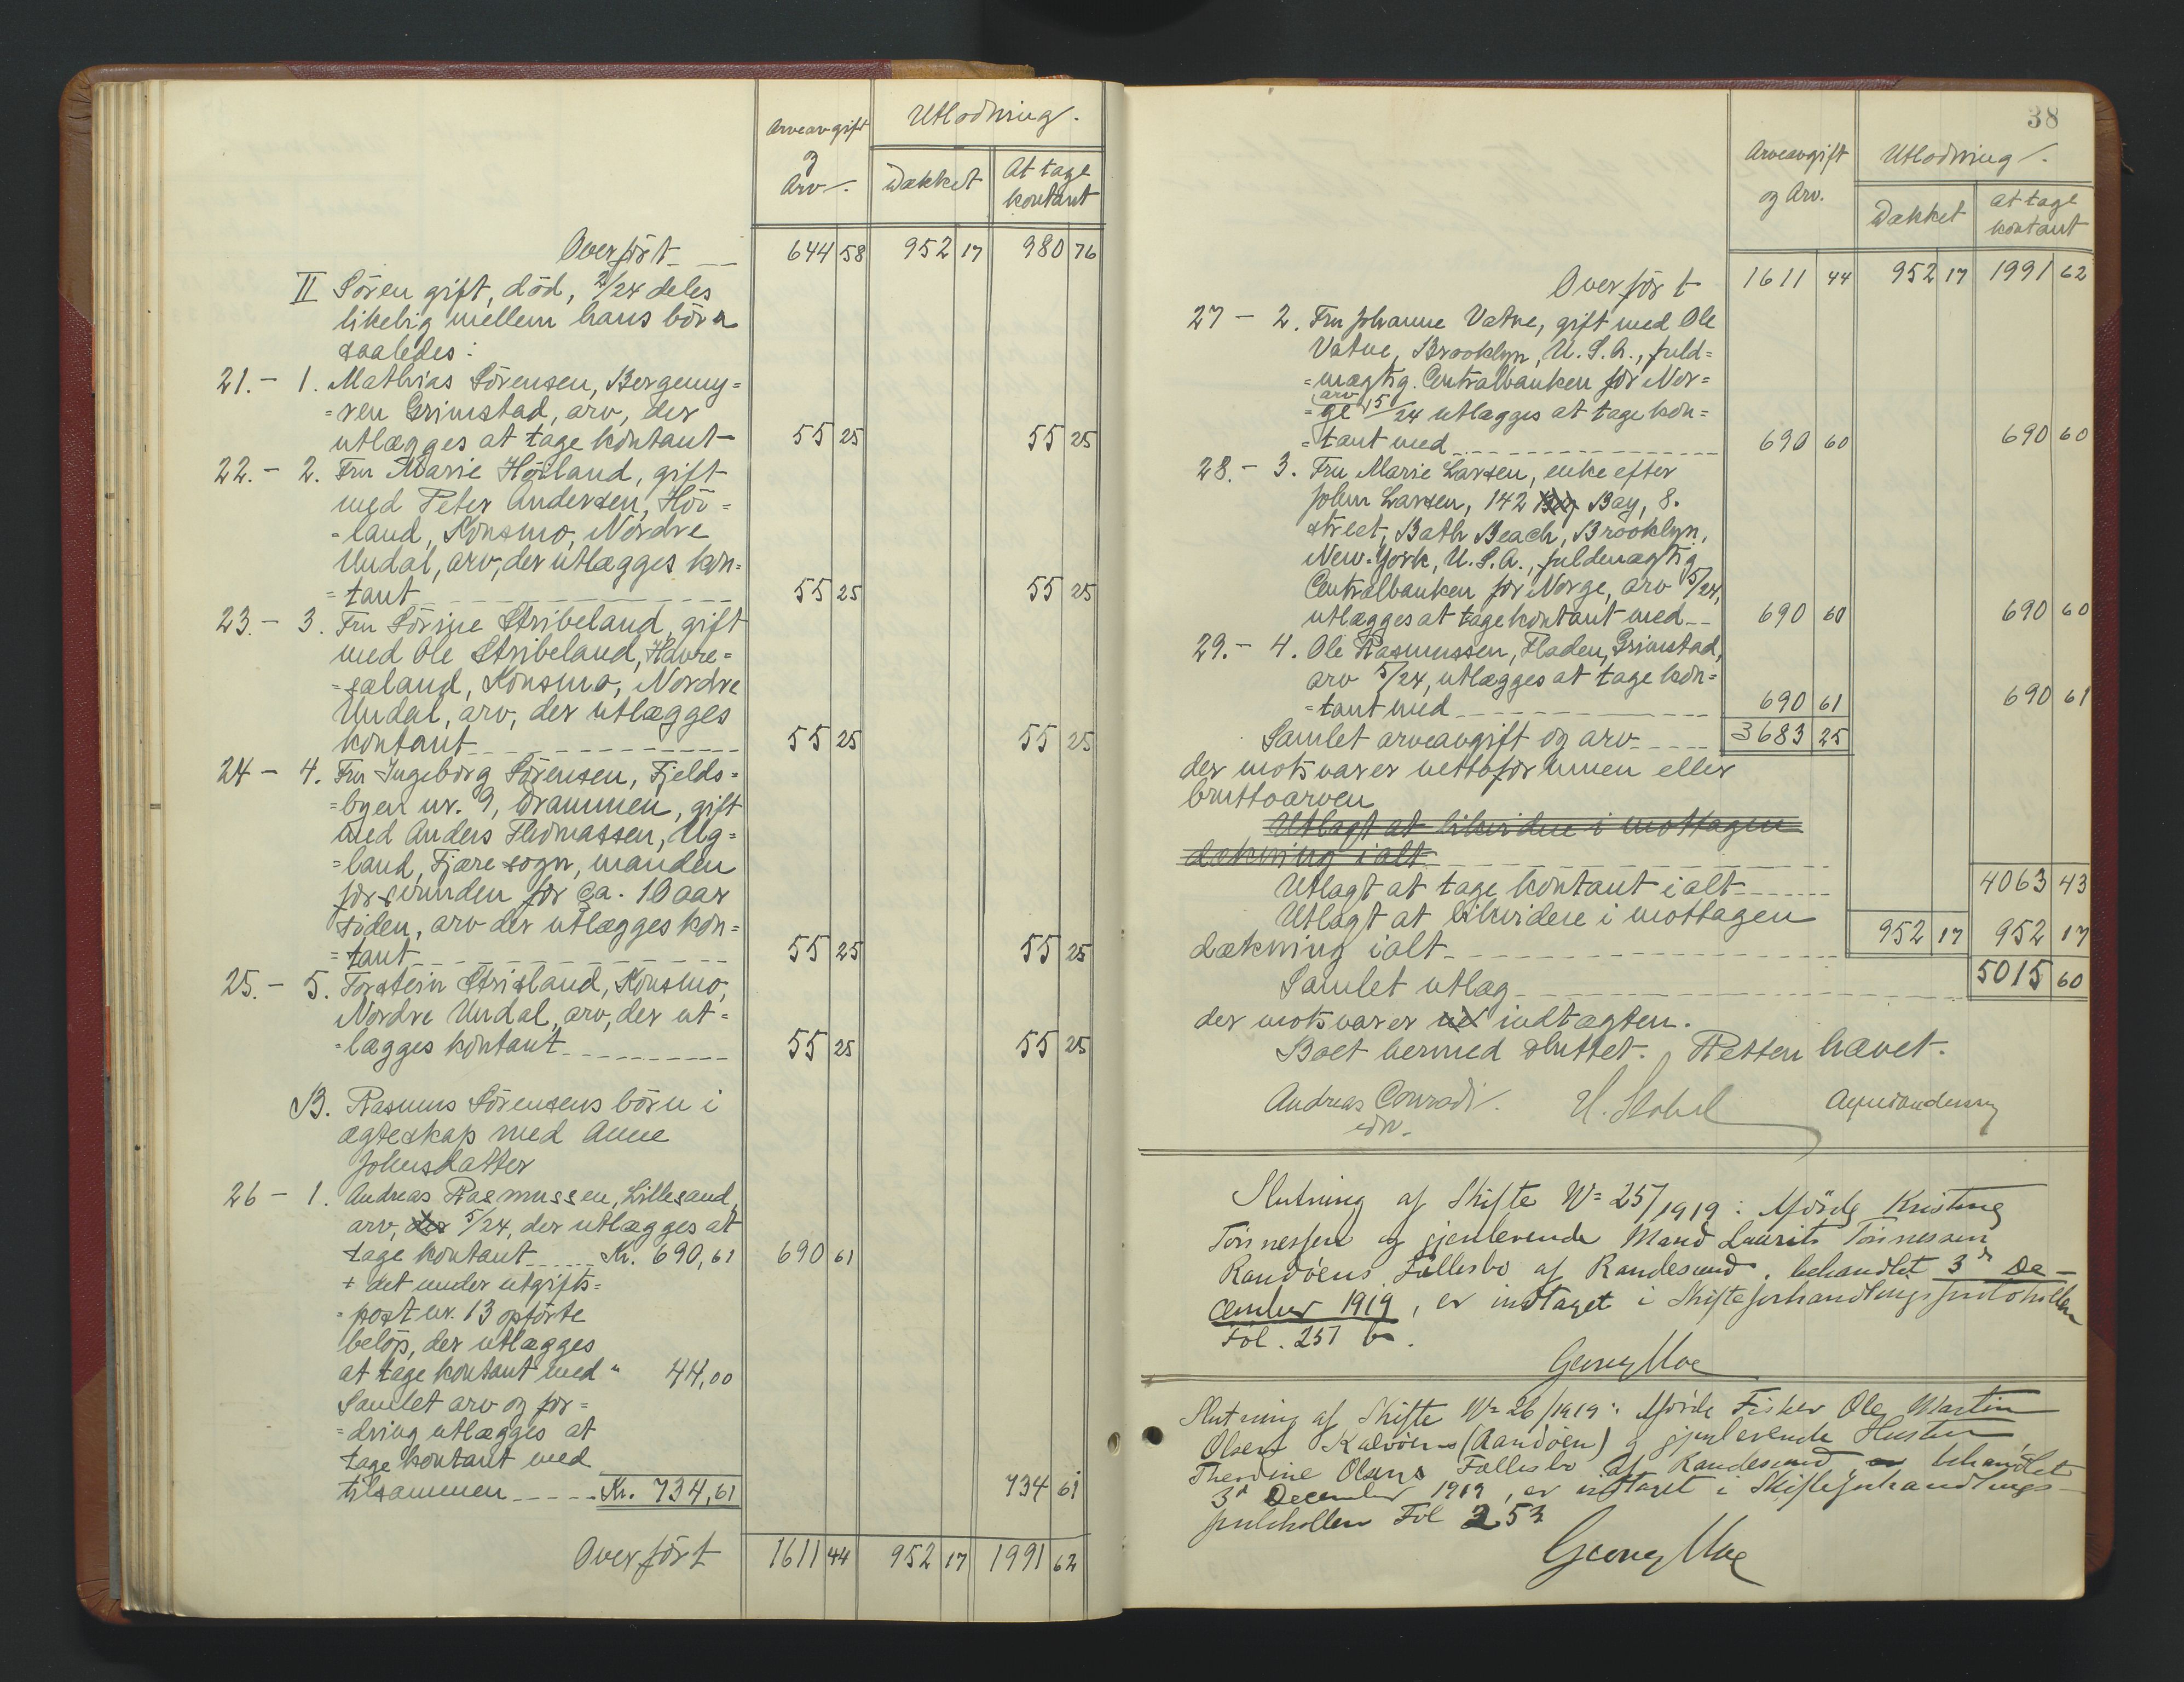 Arveavgift
og
Arv.
Utlodning.
Dækket
At tage
kontant
Overført
644 58
952 17
980 76
II Sören gift, död, 2/24 deles
likelig mellem hans börn
saaledes:
21. - 1. Mathias Sörensen, Bergemy=
=ren Grimstad, arv, der
utlægges at tage kontant
55 25
55 25
22. - 2. Fru Marie Höiland, gift
med Peter Andersen, Höi=
=land, Konsmo, Nordre
Undal, arv, der utlægges kon=
=tant
55 25
55 25
23. - 3. Fru Sörine Stribeland, gift
med Ole Stribeland, Havre=
=saland, Konsmo, Nordre
Undal, arv, der utlægges
kontant
55 25
55 25
24 - 4. Fru Ingeborg Sörensen, Fjelds=
=byen nr. 9, Drammen, gift
med Anders Thomassen, Ug=
=land, Fjære sogn, manden
forsvunden for ca. 10 aar
siden, arv der utlægges kon=
=tant
55 25
55 25
25. - 5. Torstein Strisland, Konsmo,
Nordre Undal, arv, der ut=
=lægges kontant
55 25
55 25
B. Rasmus Sörensens börn i
ægteskap med Anne
Johnsdatter
26 - 1. Andreas Rasmussen, Lillesand,
arv, der 5/24, der utlægges at
tage kontant Kr. 690,61
690 61
+ det under utgifts=
=post nr. 13 opförte
belöp, der utlægges
at tage kontant med " 44,00
Samlet arv og for=
=dring utlægges at
tage kontant med
tilsammen Kr. 734,61
734 61
Overfört
1611 44
952 17
1991 62
38
Arveavgift
og Arv.
Utlodning.
Dækket
at tage
kontant
Overfört
1611 44
952 17
1991 62
27 - 2. Fru Johanne Vatne, gift med Ole
Vatne, Brooklyn, U.S.A., fuld=
=mægtig. Centralbanken for Nor=
=ge arv 5/24 utlægges at tage kon=
=tant med
690 60
690 60
28. - 3. Fru Marie Larsen, enke efter
John Larsen, 142 Bay, 8.
street, Bath Beach, Brooklyn,
New-York, U.S.A., fuldmægtig
Centralbanken for Norge, arv 5/24,
utlægges at tage kontant med
690 60
690 60
29. - 4. Ole Rasmussen, Fladen, Grimstad,
arv 5/24, utlægges at tage kon=
=tant med
690 61
690 61
Samlet arveavgift og arv
3683 25
der motsvarer nettoformuen eller
bruttoarven
Utlagt at likvidere i mottagen
dækning ialt
Utlagt at tage kontant ialt
4063 43
Utlagt at likvidere i mottagen
dækning ialt
952 17
952 17
Samlet utlæg
5015 60
der motsvarer indtægten.
Boet hermed sluttet. Retten hævet.
Andreas Conradi
edv.
Slutning af Skifte No 25/1919: Afdöde Kristine
Tönnessen og gjenlevende Mand Laurits Tönnessen
Randöens Fællesbo af Randesund, behandlet 3de De-
cember 1919, er indtaget i Skifteforhandlingsprotokollen
Fol. 251 b.
Georg Moe
Slutning af Skifte No 26/1919: Afdöde Fisker Ole Martin
Olsen Kalvöen (Randöen) og gjenlevende Hustru
Theodine Olsens Fællesbo af Randesund, behandlet
3de December 1919, er indtaget i Skifteforhandlings-
protokollen Fol 253
Georg Moe